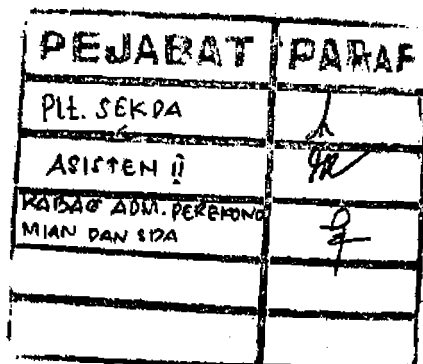 PEJABAT PARAF
Plt. SEKDA
ASISTEN II
KABAG ADM. PEREKONO
MIAN DAN SDA